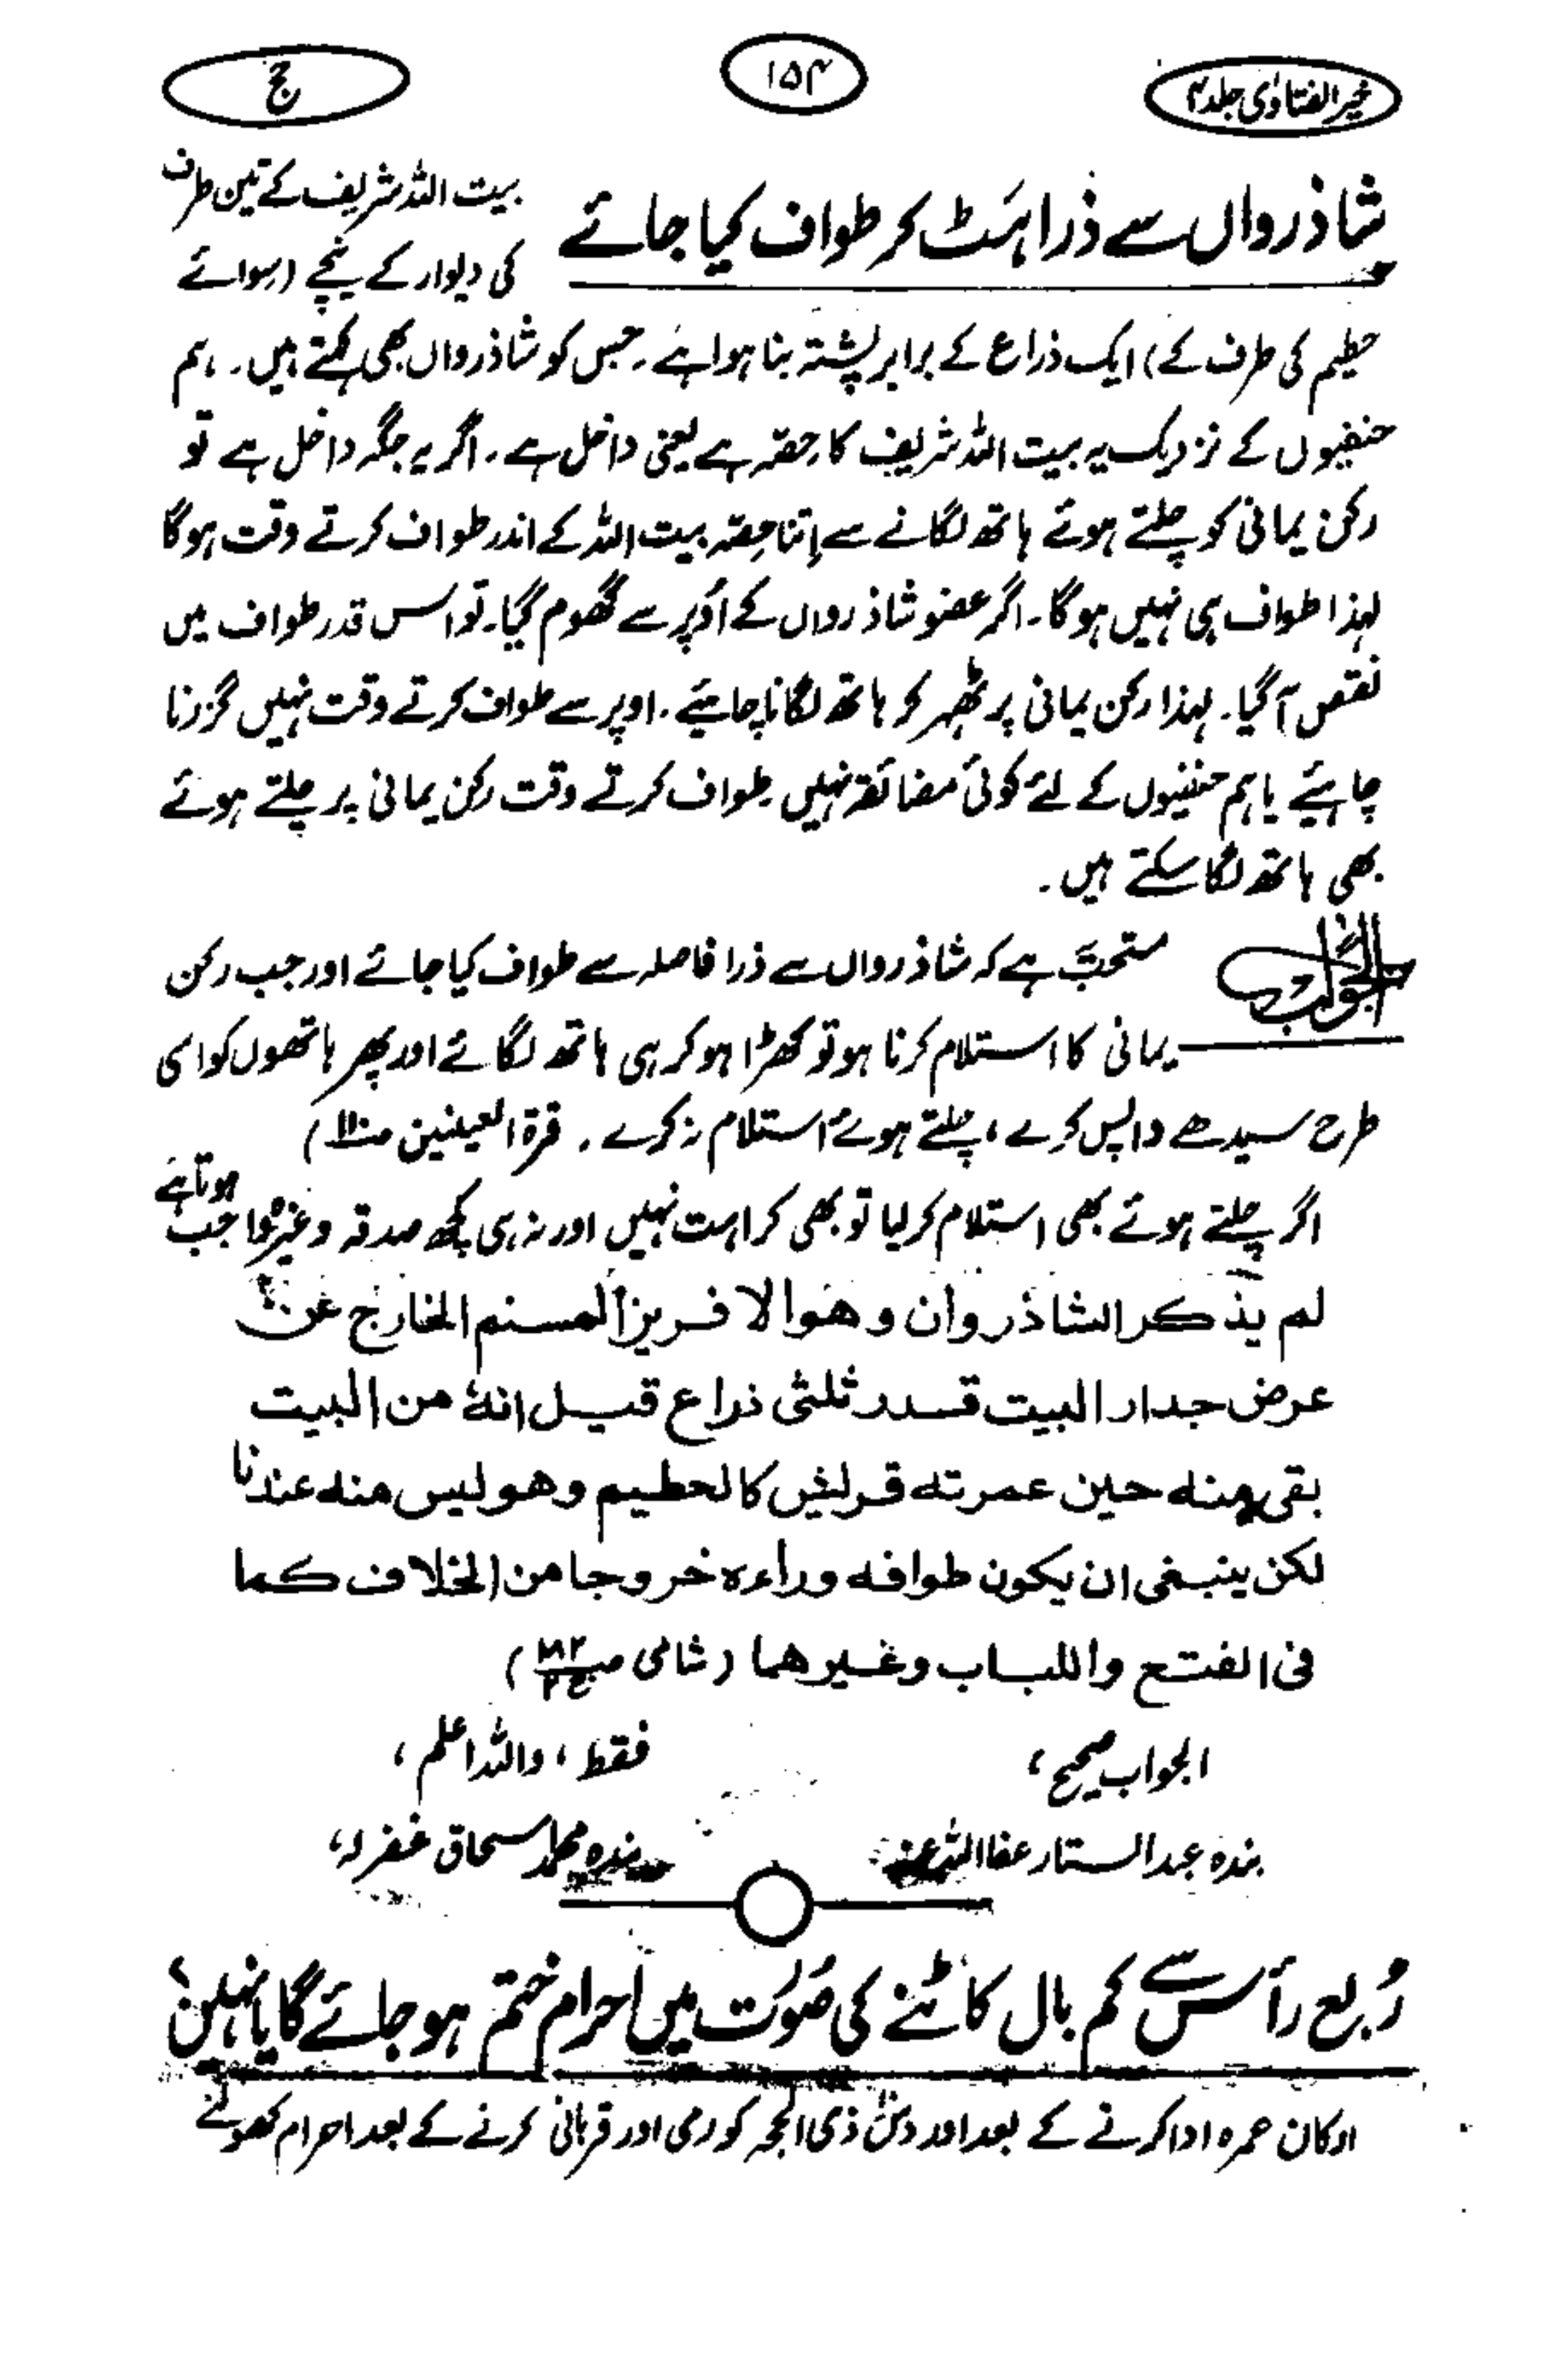 خیر الفتاویٰ جلد ۴
۱۵۴
حج
شاذرواں سے ذرا ہٹ کر طواف کیا جائے
بیت اللہ شریف کے تین طرف
کی دیوار کے نیچے (سوائے
حطیم کی طرف کے) ایک ذراع کے برابر پشتہ بنا ہوا ہے۔ جس کو شاذرواں بھی کہتے ہیں۔ ہم
حنفیوں کے نزدیک یہ بیت اللہ شریف کا حصّہ ہے یعنی داخل ہے۔ اگر یہ جگہ داخل ہے تو
رکن یمانی کو چلتے ہوئے ہاتھ لگانے سے اِتنا حِصّہ بیت اللہ کے اندر طواف کرتے وقت ہوگا
لہذا طواف ہی نہیں ہوگا۔ اگر عضو شاذرواں کے اُوپر سے گھوم گیا۔ تو اس قدر طواف میں
نقص آگیا۔ لہذا رکن یمانی پر ٹھہر کر ہاتھ لگانا چاہیئے۔ اوپر سے طواف کرتے وقت نہیں گزرنا
چاہیئے یا ہم حنفیوں کے لئے کوئی مضائقہ نہیں۔ طواف کرتے وقت رکن یمانی پر چلتے ہوئے
بھی ہاتھ لگا سکتے ہیں۔
الجواب
مستحبّ ہے کہ شاذرواں سے ذرا فاصلہ سے طواف کیا جائے اور جب رکن
یمانی کا استلام کرنا ہو تو کھڑا ہو کر ہی ہاتھ لگائے اور پھر ہاتھوں کو اسی
طرح سیدھے واپس کرے، چلتے ہوئے استلام نہ کرے۔ قرة العینین
اگر چلتے ہوئے بھی استلام کر لیا تو بھی کراہت نہیں اور نہ ہی کچھ صدقہ وغیرہ واجب ہوتا ہے
لم يذكر الشاذروان وهو الافريز المسنم الخارج عن
عرض جدار البيت قدر ثلثى ذراع قيل انهٗ من البيت
بقى منه حين عمرته قريش كالحطيم وهو ليس منه عندنا
لكن ينبغى ان يكون طوافه وراءه خروجا من الخلاف كما
فى الفتح واللباب وغيرهما (شامى
فقط، واللہ اعلم،
الجواب صحیح،
بندہ محمد اسحاق غفرلہ،
بندہ عبدالستار عفا اللہ عنہ
رُبع رأس سے کم بال کاٹنے کی صُورت میں احرام ختم ہو جائے گا یا نہیں؟
ارکان عمرہ ادا کرنے کے بعد اور دسؔ ذی الحجہ کو رمی اور قربانی کرنے کے بعد احرام کھولنے